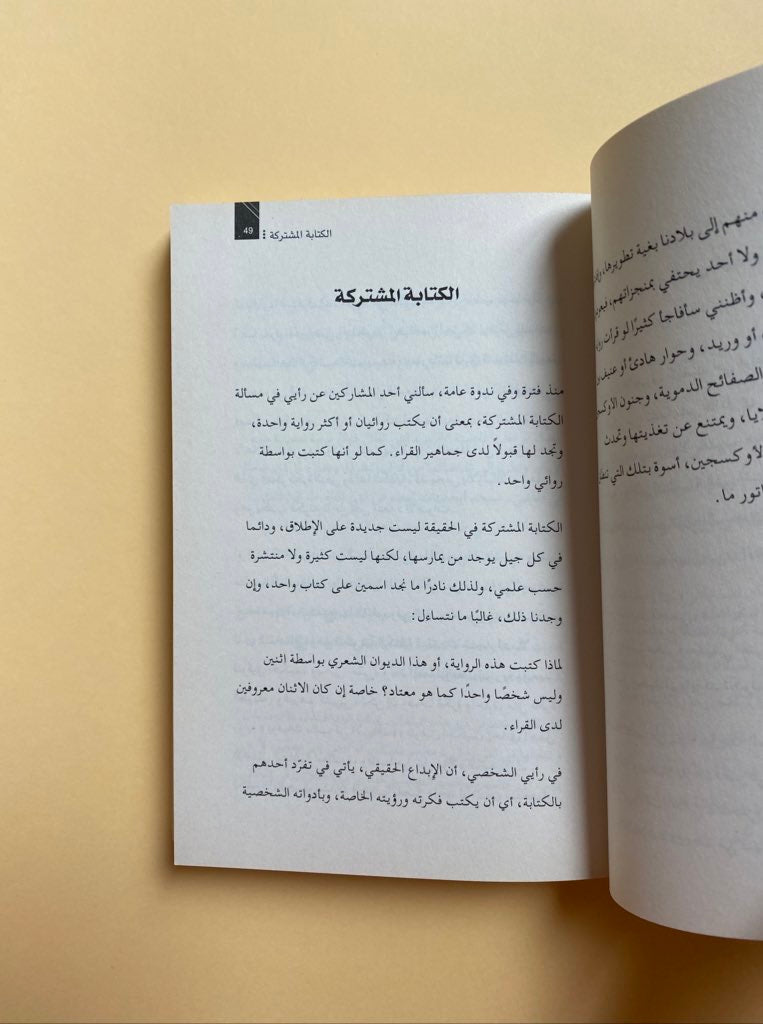 منهم إلى بلادنا بغية تطويرها،
ولا أحد يحتفي بمنجزاتهم،
، وأظنني سأفاجأ كثيرًا لو قرأت
أو وريد، وحوار هادئ أو عنيف
الصفائح الدموية، وجنون
ويمتنع عن تغذيتها وتحدث
أسوة بتلك التي
ما.
49
الكتابة المشتركة
الكتابة المشتركة
منذ فترة وفي ندوة عامة، سألني أحد المشاركين عن رأيي في مسألة
الكتابة المشتركة، بمعنى أن يكتب روائيان أو أكثر رواية واحدة،
وتجد لها قبولاً لدى جماهير القراء. كما لو أنها كتبت بواسطة
روائي واحد.
الكتابة المشتركة في الحقيقة ليست جديدة على الإطلاق، ودائما
في كل جيل يوجد من يمارسها، لكنها ليست كثيرة ولا منتشرة
حسب علمي، ولذلك نادرًا ما نجد اسمين على كتاب واحد، وإن
وجدنا ذلك، غالبًا ما نتساءل:
لماذا كتبت هذه الرواية، أو هذا الديوان الشعري بواسطة اثنين
وليس شخصًا واحدًا كما هو معتاد؟ خاصة إن كان الاثنان معروفين
لدى القراء.
في رأيي الشخصي، أن الإبداع الحقيقي، يأتي في تفرّد أحدهم
بالكتابة، أي أن يكتب فكرته ورؤيته الخاصة، وبأدواته الشخصية